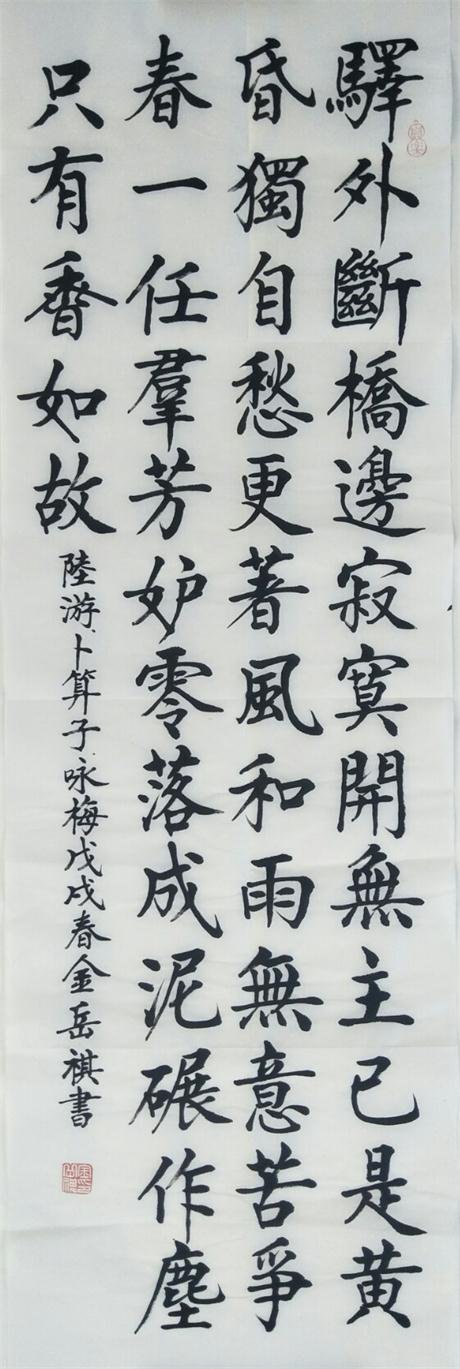 驛外斷橋邊寂寞開無主已是黄
昏獨自愁更著風和雨無意苦爭
春一任羣芳妒零落成泥碾作塵
只有香如故
陸游卜算子咏梅戊戌春金岳祺書